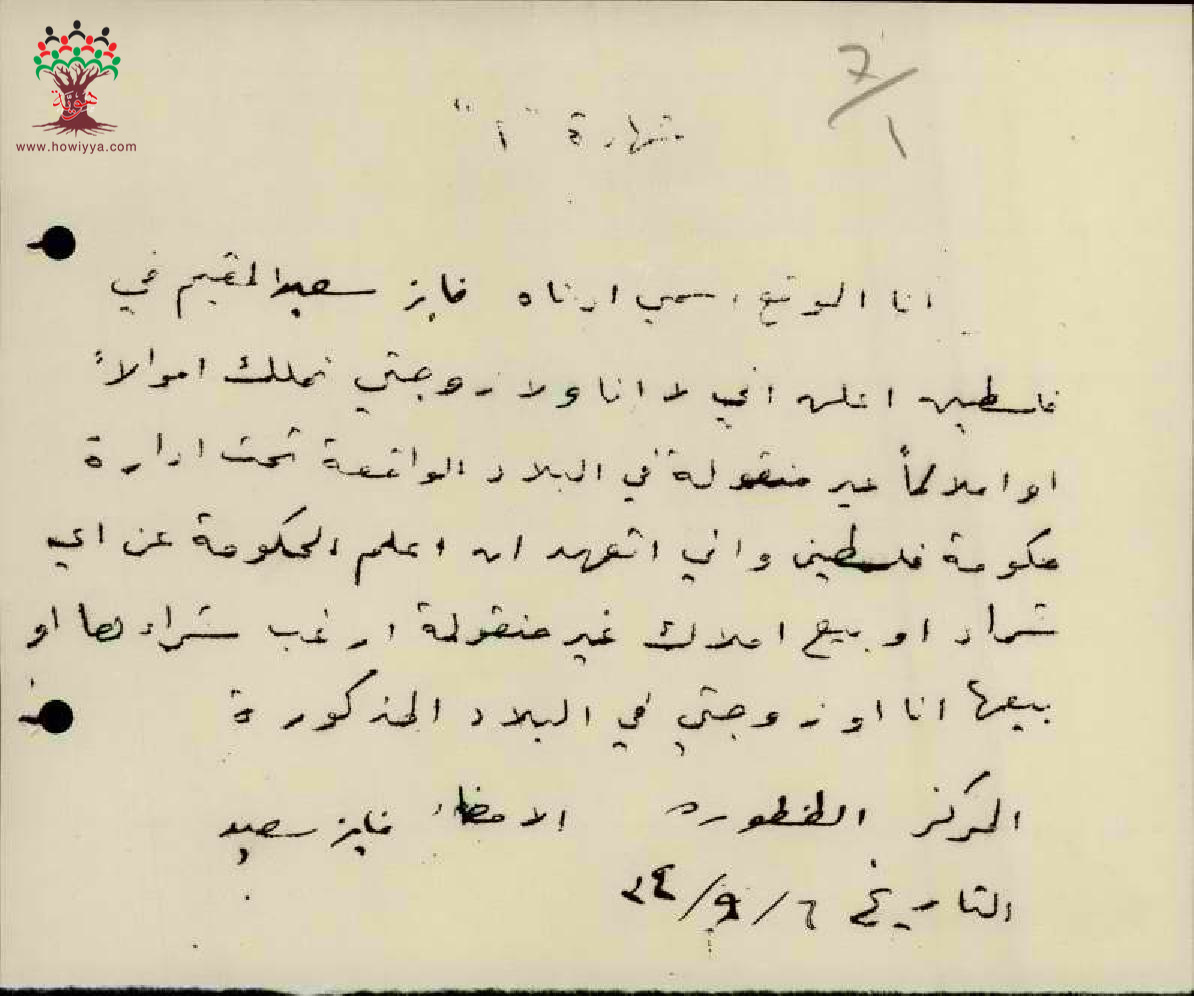 هوية
www.howiyya.com
7/1
شهادة "أ"
انا الموقع اسمي ادناه فايز سعيد المقيم في
فلسطين اعلن اني لا انا ولا زوجتي نملك اموالاً
او املاكاً غير منقولة في البلاد الواقعة تحت ادارة
حكومة فلسطين واني اتعهد ان اعلم الحكومة عن اي
شراء او بيع املاك غير منقولة ارغب شراءها او
بيعها انا او زوجتي في البلاد المذكورة
المركز الطنطوره الامضاء فايز سعيد
التاريخ ٦/٩/٣٤